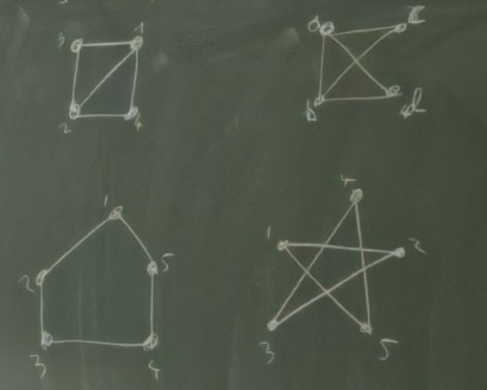 3 1
2 4
a c
b d
1
2 5
3 4
4
1 2
3 5